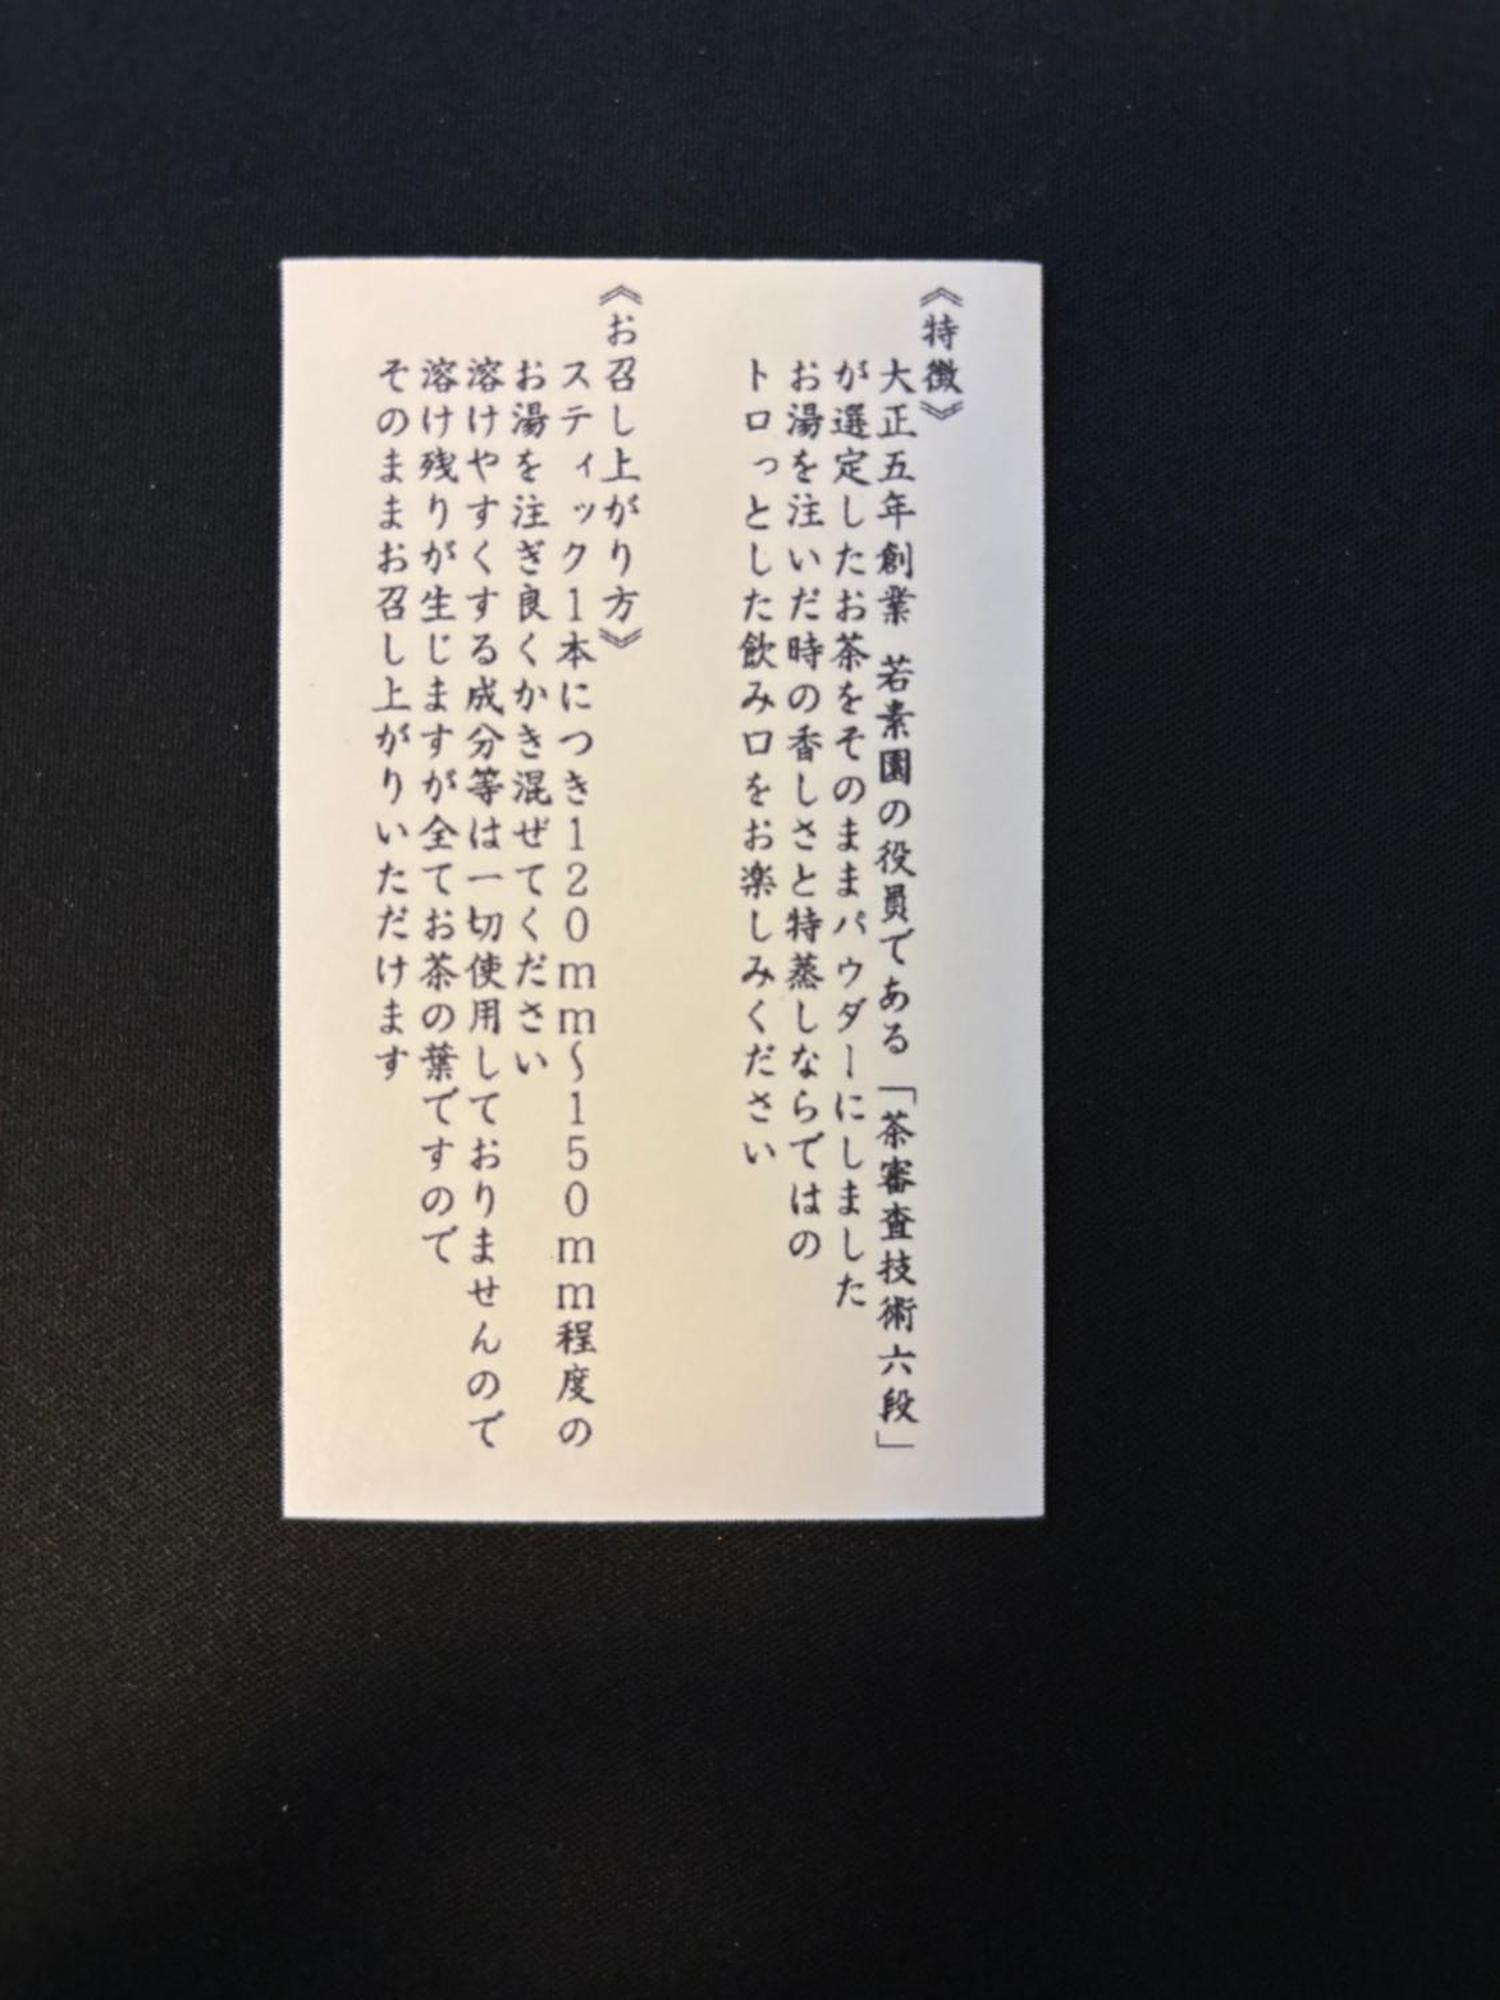 《特徴》
大正五年創業 若素園の役員である「茶審査技術六段」
が選定したお茶をそのままパウダーにしました
お湯を注いだ時の香しさと特蒸しならではの
トロっとした飲み口をお楽しみください
《お召し上がり方》
スティック1本につき120mm～150mm程度の
お湯を注ぎ良くかき混ぜてください
溶けやすくする成分等は一切使用しておりませんので
溶け残りが生じますが全てお茶の葉ですので
そのままお召し上がりいただけます